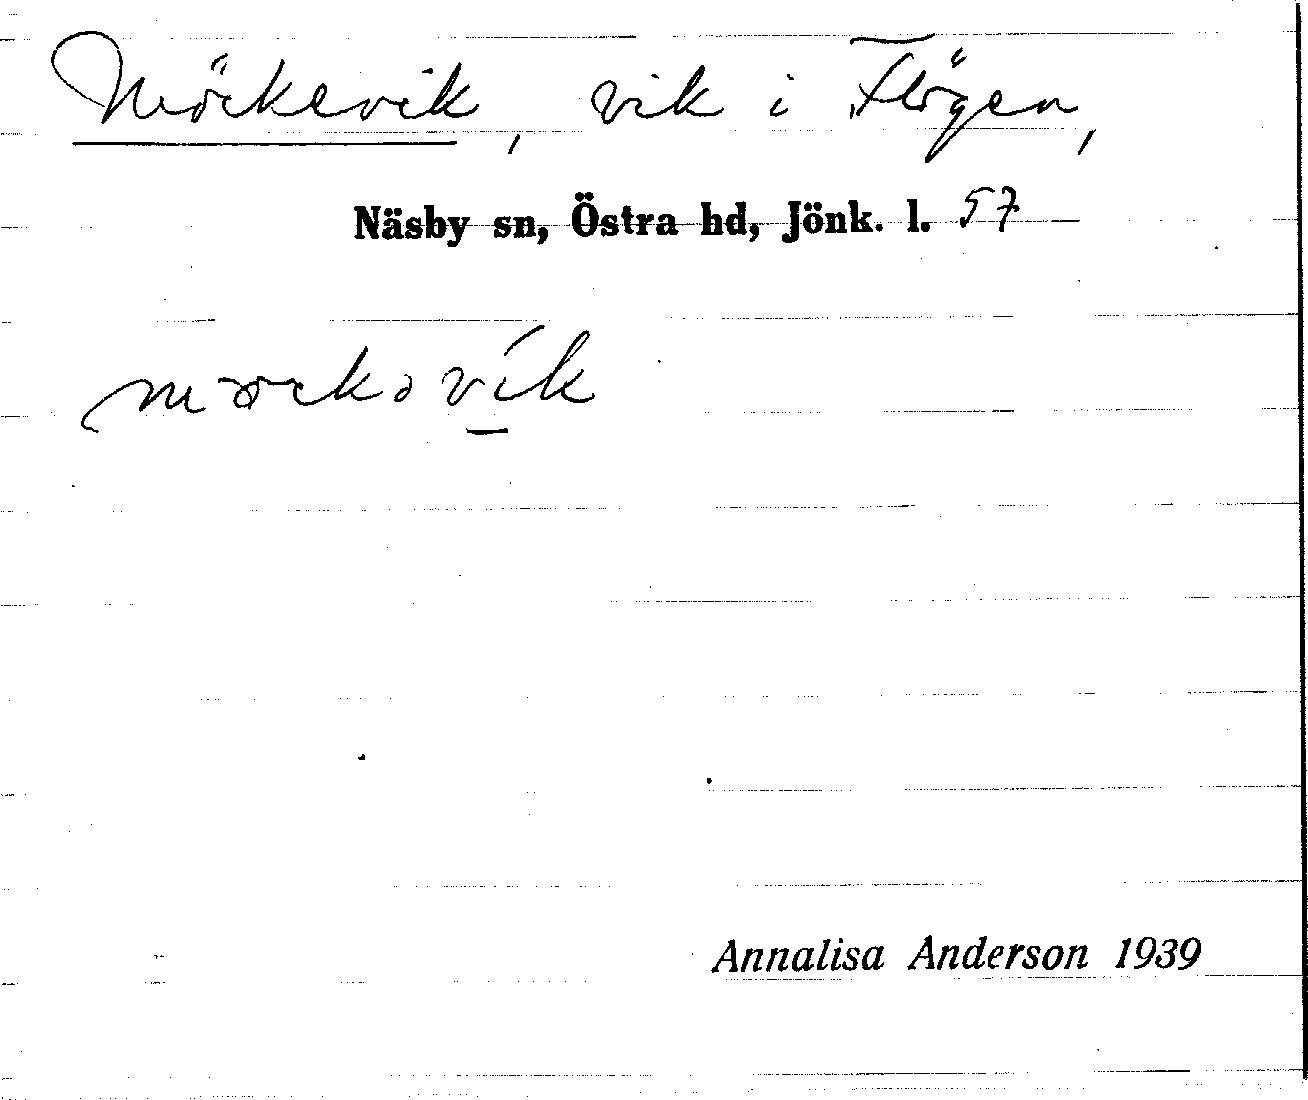 Mörkevik, vik i Flögen,
Näsby sn, Östra hd, Jönk. l. 57
Annalisa Anderson 1939